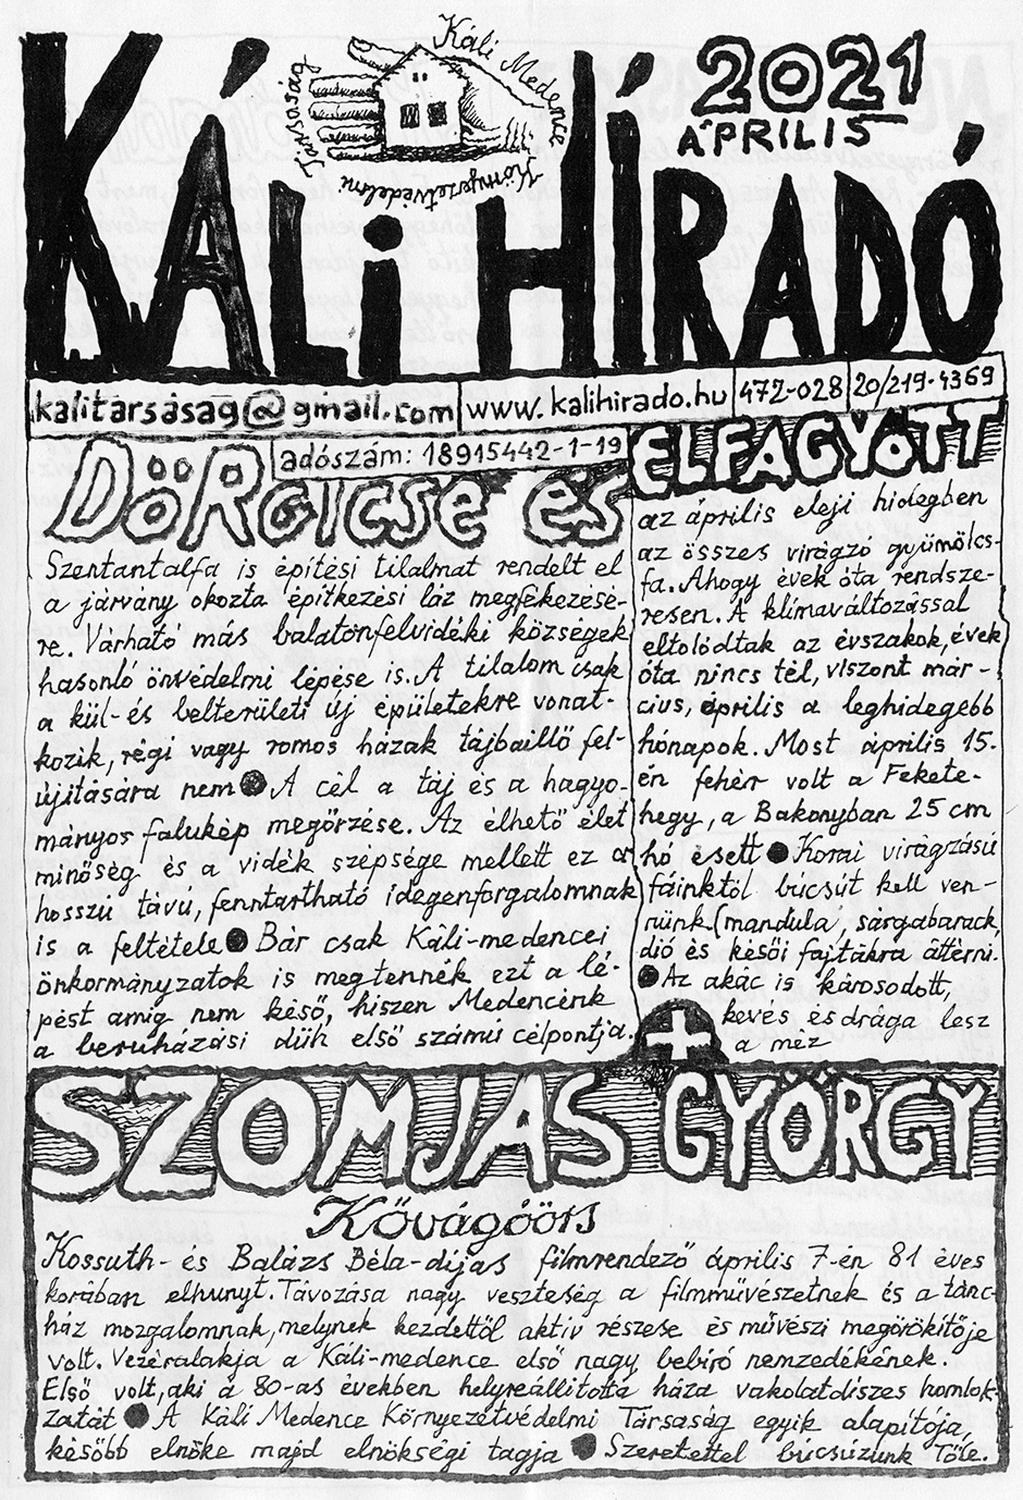 Káli Medence
Környezetvédelmi
Társaság
2021
ÁPRILIS
KÁLi HÍRADÓ
kalitarsasag@gmail.com
www.kalihirado.hu
472-028
20/219-4369
adószám: 18915442-1-19
DÖRGICSE és
Szentantalfa is építési tilalmat rendelt el
a járvány okozta építkezési láz megfékezésé-
re. Várható más balatonfelvidéki községek
hasonló önvédelmi lépése is. A tilalom csak
a kül- és belterületi új épületekre vonat-
kozik, régi vagy romos házak tájbaillő fel-
újítására nem ● A cél a táj és a hagyo-
mányos falukép megőrzése. Az élhető élet
minőség és a vidék szépsége mellett ez a
hosszú távú, fenntartható idegenforgalomnak
is a feltétele ● Bár csak Káli-medencei
önkormányzatok is megtennék ezt a lé-
pést amíg nem késő, hiszen Medencénk
a beruházási düh első számú célpontja.
ELFAGYOTT
az április eleji hidegben
az összes virágzó gyümölcs-
fa. Ahogy évek óta rendsze-
resen. A klímaváltozással
eltolódtak az évszakok, évek
óta nincs tél, viszont már-
cius, április a leghidegebb
hónapok. Most április 15.-
én fehér volt a Fekete-
hegy, a Bakonyban 25 cm
hó esett ● Korai virágzású
fáinktól búcsút kell ven-
nünk (mandula, sárgabarack,
dió és késői fajtákra áttérni.
● Az akác is károsodott,
kevés és drága lesz
a méz
SZOMJAS GYÖRGY
Kővágóörs
Kossuth- és Balázs Béla-díjas filmrendező április 7-én 81 éves
korában elhunyt. Távozása nagy veszteség a filmművészetnek és a tánc-
ház mozgalomnak, melynek kezdettől aktív részese és művészi megörökítője
volt. Vezéralakja a Káli-medence első nagy bebíró nemzedékének.
Első volt, aki a 80-as években helyreállította háza vakolatdíszes homlok-
zatát ● A Káli Medence Környezetvédelmi Társaság egyik alapítója,
később elnöke majd elnökségi tagja ● Szeretettel búcsúzunk Tőle.